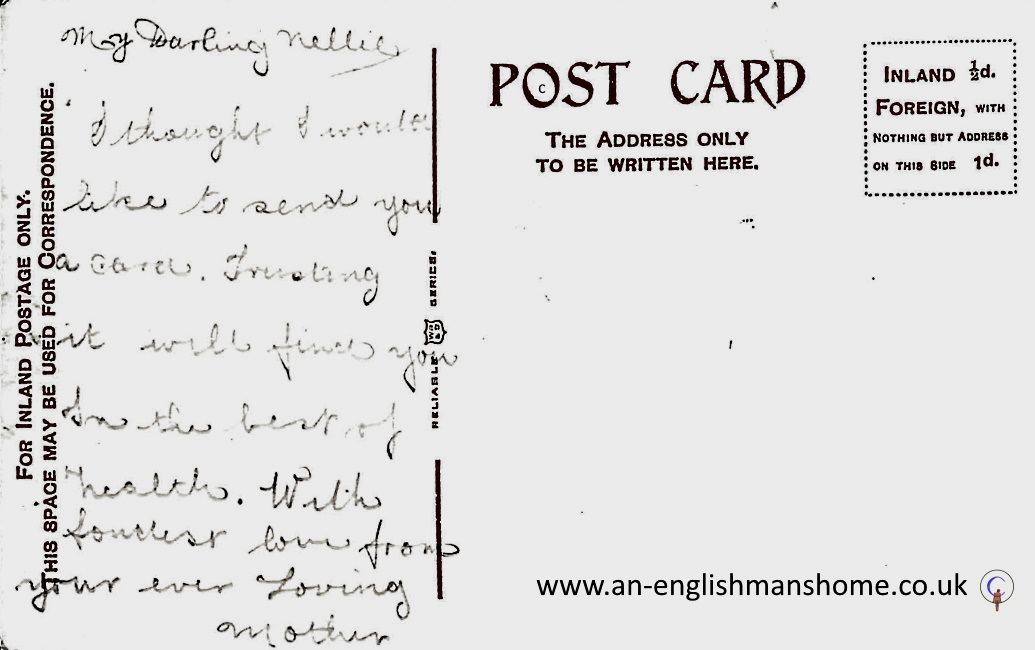 My Darling Nellie
I thought I would
like to send you
a card. Trusting
it will find you
In the best of
health. With
fondest love from
your ever Loving
Mother
FOR INLAND POSTAGE ONLY.
THIS SPACE MAY BE USED FOR CORRESPONDENCE.
RELIABLE WR&S SERIES.
POST CARD
THE ADDRESS ONLY
TO BE WRITTEN HERE.
INLAND ½d.
FOREIGN, WITH
NOTHING BUT ADDRESS
ON THIS SIDE 1d.
www.an-englishmanshome.co.uk